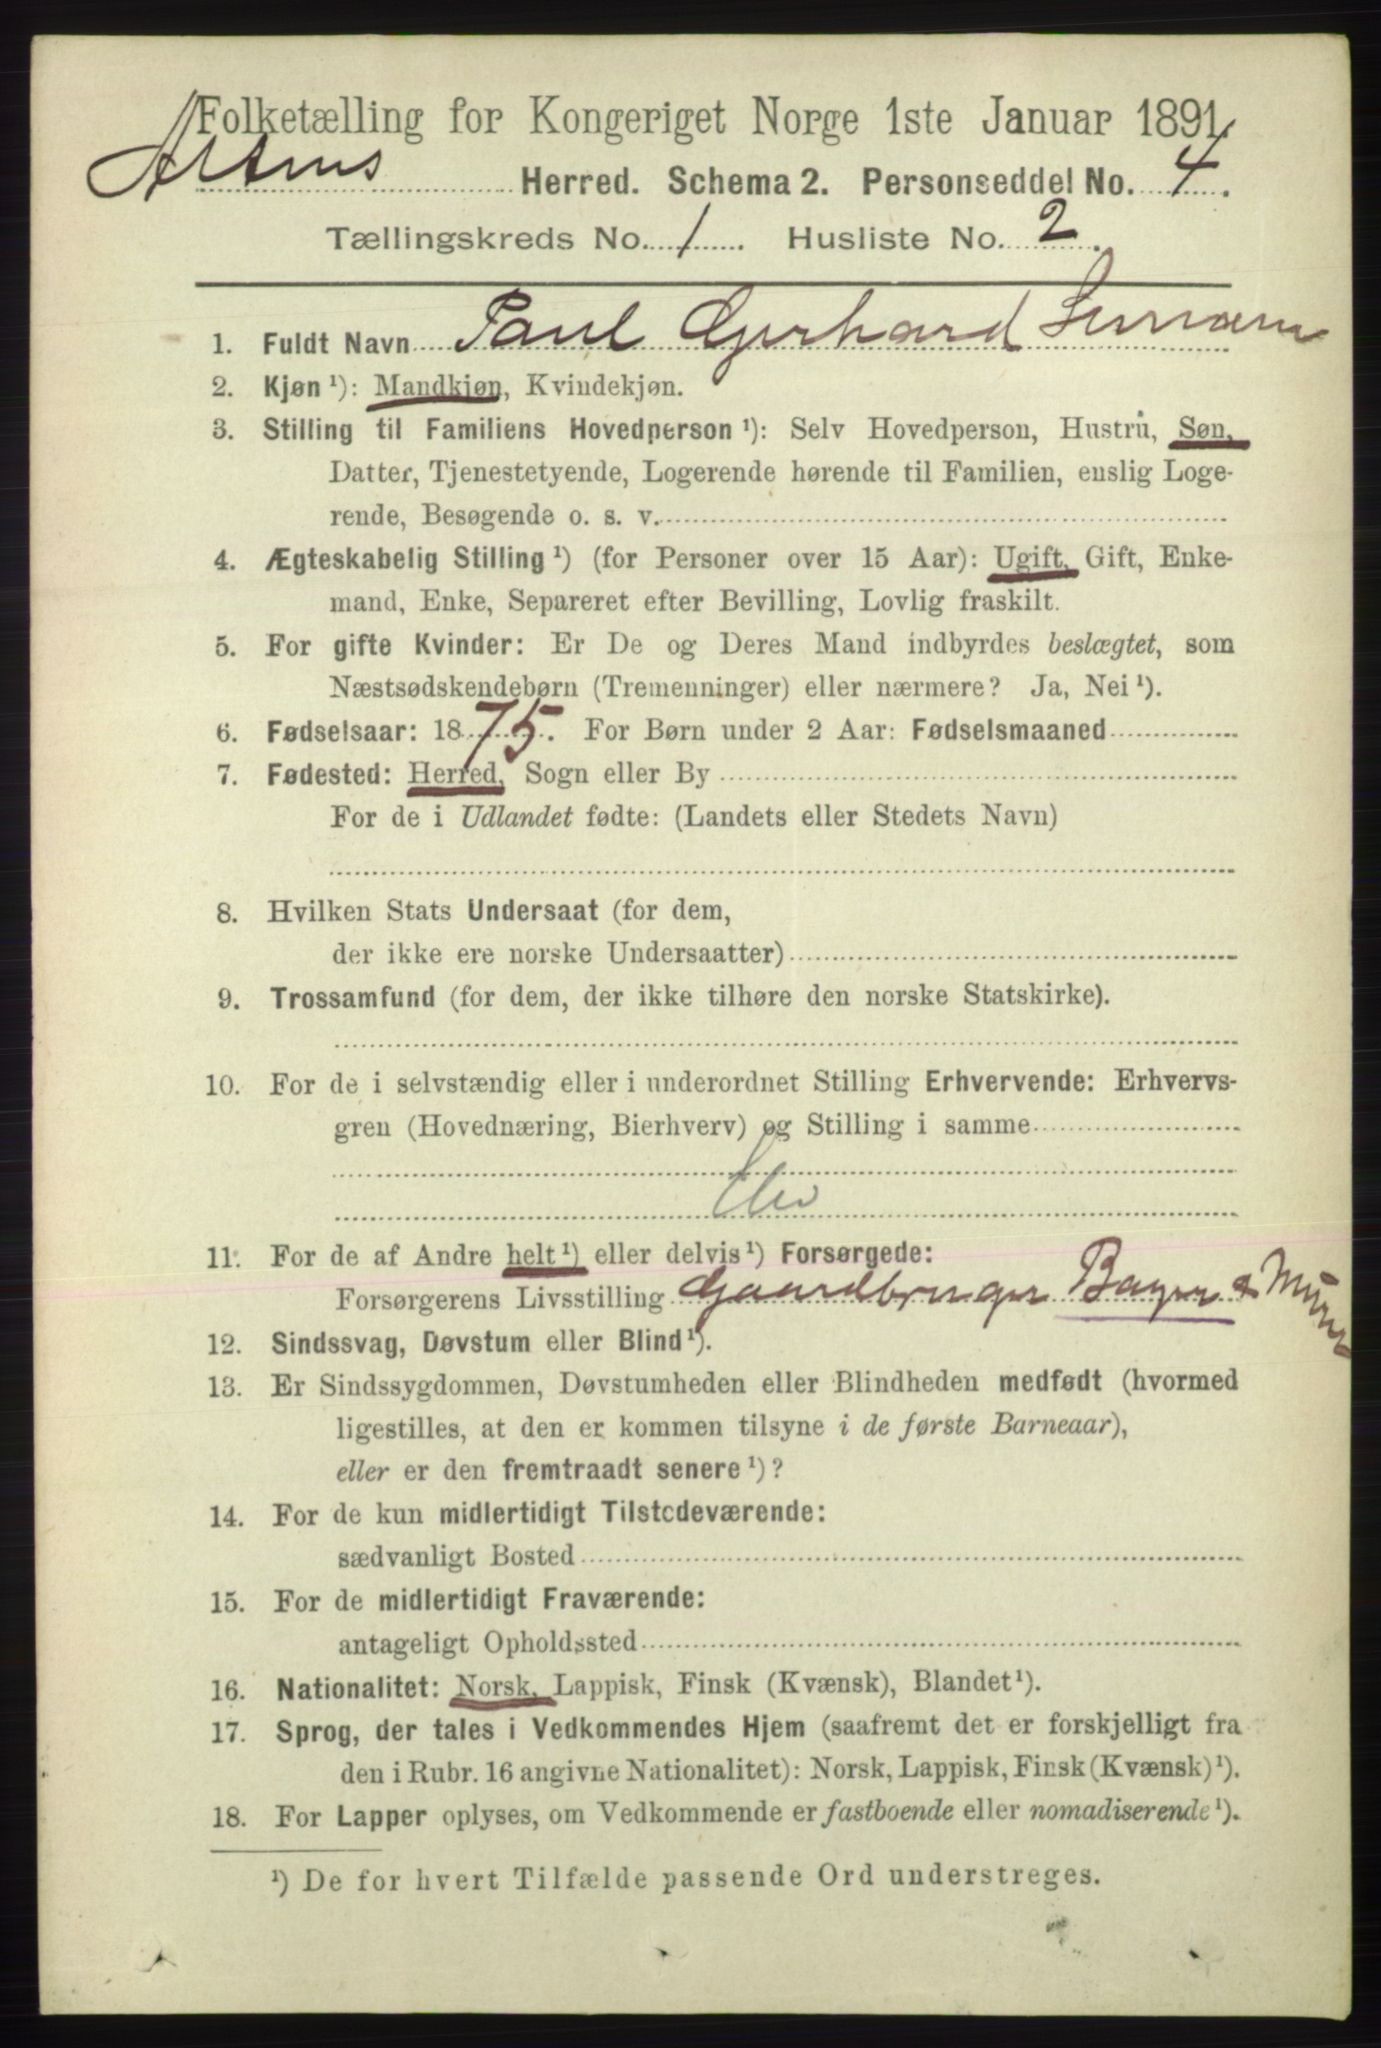 Folketælling for Kongeriget Norge 1ste Januar 1891.
Herred. Schema 2. Personseddel No. 4.
Tællingskreds No. 1. Husliste No. 2.
1. Fuldt Navn Paul Gerhard
2. Kjøn ¹): Mandkjøn, Kvindekjøn.
3. Stilling til Familiens Hovedperson ¹): Selv Hovedperson, Hustru, Søn,
Datter, Tjenestetyende, Logerende hørende til Familien, enslig Loge-
rende, Besøgende o. s. v.
4. Ægteskabelig Stilling ¹) (for Personer over 15 Aar): Ugift, Gift, Enke-
mand, Enke, Separeret efter Bevilling, Lovlig fraskilt.
5. For gifte Kvinder: Er De og Deres Mand indbyrdes beslægtet, som
Næstsødskendebørn (Tremenninger) eller nærmere? Ja, Nei ¹).
6. Fødselsaar: 1875. For Børn under 2 Aar: Fødselsmaaned
7. Fødested: Herred, Sogn eller By
For de i Udlandet fødte: (Landets eller Stedets Navn)
8. Hvilken Stats Undersaat (for dem,
der ikke ere norske Undersaatter)
9. Trossamfund (for dem, der ikke tilhøre den norske Statskirke).
10. For de i selvstændig eller i underordnet Stilling Erhvervende: Erhvervs-
gren (Hovednæring, Bierhverv) og Stilling i samme
11. For de af Andre helt ¹) eller delvis ¹) Forsørgede:
Forsørgerens Livsstilling Gaardbruger
12. Sindssvag, Døvstum eller Blind ¹).
13. Er Sindssygdommen, Døvstumheden eller Blindheden medfødt (hvormed
ligestilles, at den er kommen tilsyne i de første Barneaar),
eller er den fremtraadt senere ¹)?
14. For de kun midlertidigt Tilstedeværende:
sædvanligt Bosted
15. For de midlertidigt Fraværende:
antageligt Opholdssted
16. Nationalitet: Norsk, Lappisk, Finsk (Kvænsk), Blandet ¹).
17. Sprog, der tales i Vedkommendes Hjem (saafremt det er forskjelligt fra
den i Rubr. 16 angivne Nationalitet): Norsk, Lappisk, Finsk (Kvænsk) ¹).
18. For Lapper oplyses, om Vedkommende er fastboende eller nomadiserende ¹).
¹) De for hvert Tilfælde passende Ord understreges.